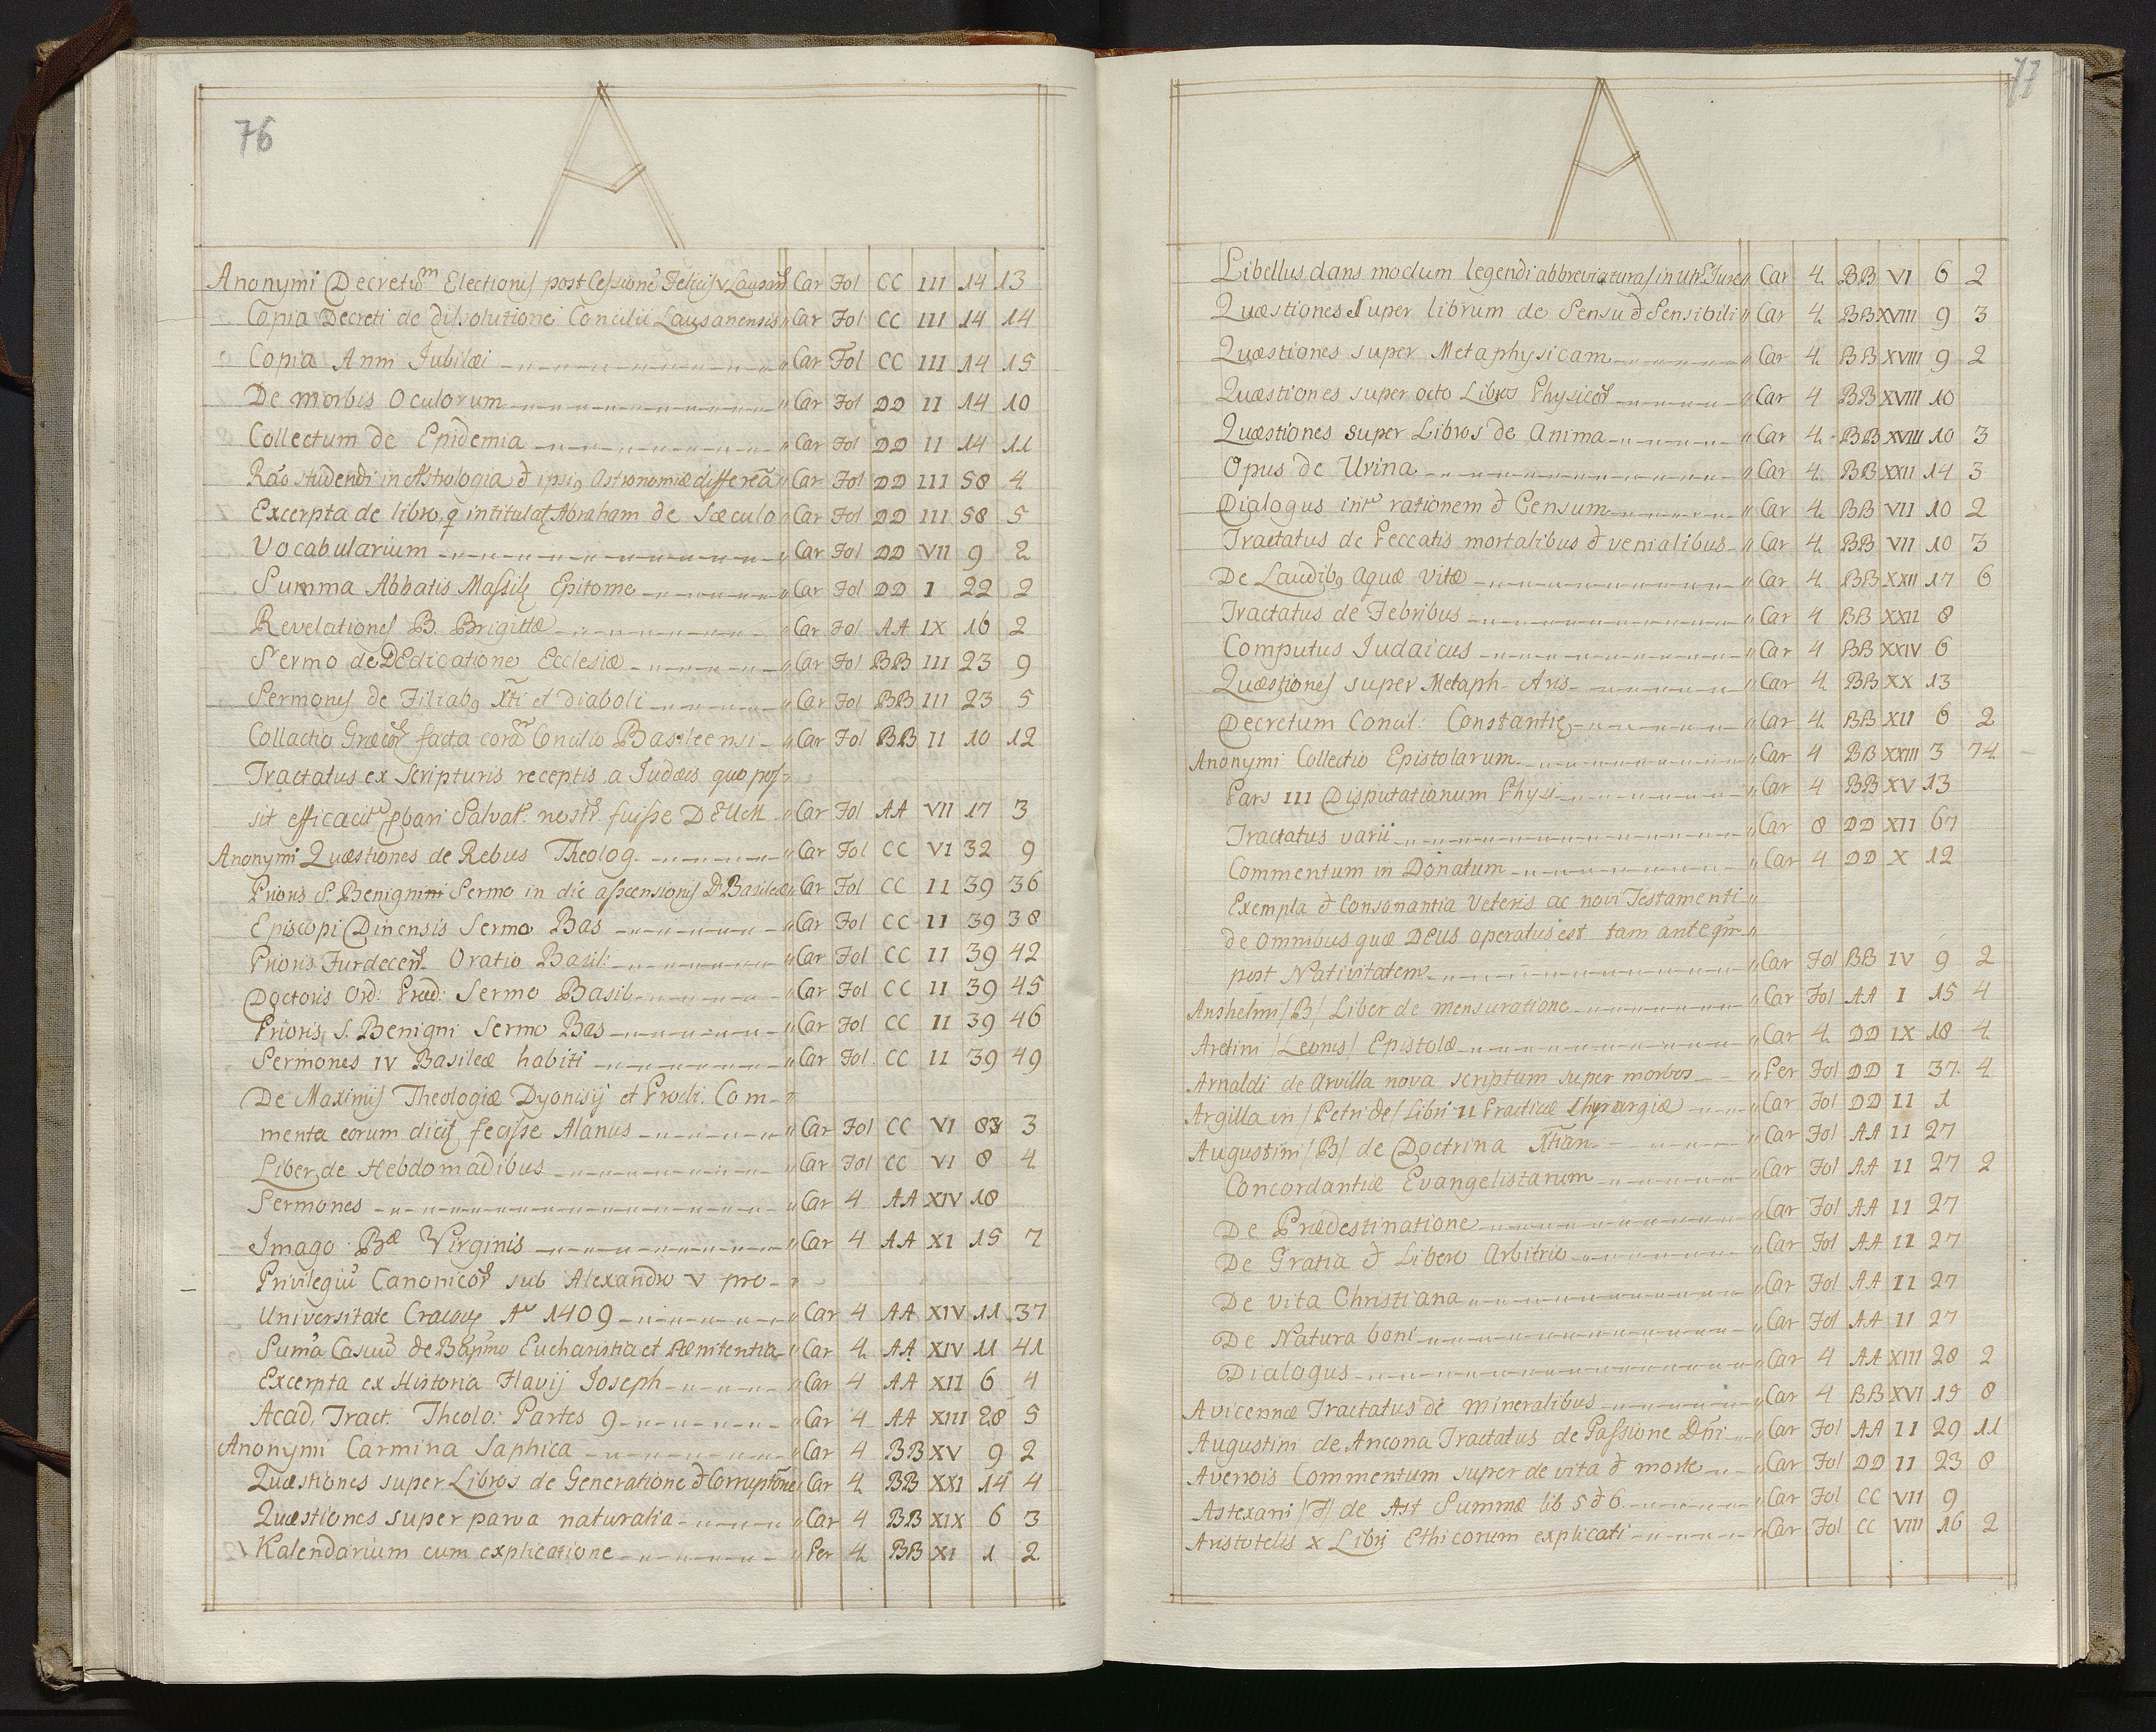 76
A
Anonymi Decretum Electionis post Cessionē Felicis V Lausañ Car Fol CC III 14 13
Copia Decreti de dissolutione Concilii Lausanensis " Car Fol CC III 14 14
Copia Anni Jubilæi " Car Fol CC III 14 15
De morbis Oculorum " Car Fol DD II 14 10
Collectum de Epidemia " Car Fol DD II 14 11
Rão studendi in Astrologia & ipsi9 Astronomiæ differeã " Car Fol DD III 58 4
Excerpta de libro, q intitulat Abraham de Sæculo " Car Fol DD III 58 5
Vocabularium " Car Fol DD VII 9 2
Summa Abbatis Massil Epitome " Car Fol DD I 22 2
Revelationes B. Brigittæ " Car Fol AA IX 16 2
Sermo de DEdicatione Ecclesiæ " Car Fol BB III 23 9
Sermones de Filiab9 Xti et diaboli " Car Fol BB III 23 5
Collactio Græcor facta corãm Concilio Basileensi " Car Fol BB II 10 12
Tractatus ex Scripturis receptis a Judæis quo pos-
sit efficacit pbari Salvat. nostr. fuisse DEUM " Car Fol AA VII 17 3
Anonymi Quæstiones de Rebus Theolog. " Car Fol CC VI 32 9
Prioris S. Benigni Sermo in die ascensionis D. Basileæ " Car Fol CC II 39 36
Episcopi Dinensis Sermo Bas " Car Fol CC II 39 38
Prioris Furdecen Oratio Basil: " Car Fol CC II 39 42
Doctoris Ord: Præd: Sermo Basil " Car Fol CC II 39 45
Prioris S. Benigni Sermo Bas " Car Fol CC II 39 46
Sermones IV Basileæ habiti " Car Fol CC II 39 49
De Maximis Theologiæ Dyonisij et Procli. Com-
menta eorum dicit fecisse Alanus " Car Fol CC VI 83 3
Liber de Hebdomadibus " Car Fol CC VI 8 4
Sermones " Car 4 AA XIV 18
Imago Bæ Virginis " Car 4 AA XI 15 7
Privilegiũ Canonicor sub Alexandro V pro-
Universitate Cracov Ao 1409 " Car 4 AA XIV 11 37
Sum̃a Casuũ de Bapmo Eucharistia et Pænitentia " Car 4 AA XIV 11 41
Excerpta ex Historia Flavij Joseph " Car 4 AA XII 6 4
Acad. Tract. Theolo. Partes 9 " Car 4 AA XIII 28 5
Anonymi Carmina Saphica " Car 4 BB XV 9 2
Quæstiones super Libros de Generatione & Corruptõne Car 4 BB XXI 14 4
Quæstiones super parva naturalia " Car 4 BB XIX 6 3
Kalendarium cum explicatione " Per 4 BB XI 1 2
77
A
Libellus dans modum legendi abbreviaturas in utr Jure " Car 4 BB VI 6 2
Quæstiones super librum de Sensu & Sensibili " Car 4 BB XVIII 9 3
Quæstiones super Metaphysicam " Car 4 BB XVIII 9 2
Quæstiones super octo Libros Physicor " Car 4 BB XVIII 10
Quæstiones super Libros de Anima " Car 4 BB XVIII 10 3
Opus de Urina " Car 4 BB XXII 14 3
Dialogus int rationem & Censum " Car 4 BB VII 10 2
Tractatus de Peccatis mortalibus & venialibus " Car 4 BB VII 10 3
De Laudib9 Aquæ Vitæ " Car 4 BB XXII 17 6
Tractatus de Febribus " Car 4 BB XXII 8
Computus Judaicus " Car 4 BB XXIV 6
Quæstiones super Metaph. Aris " Car 4 BB XX 13
Decretum Concil: Constantiẹ " Car 4 BB XII 6 2
Anonymi Collectio Epistolarum " Car 4 BB XXIII 3 74
Pars III Disputationum Physi " Car 4 BB XV 13
Tractatus varii " Car 8 DD XII 67
Commentum in Donatum " Car 4 DD X 12
Exempla & Consonantia Veteris ac novi Testamenti "
de omnibus quæ DEUS operatus est tam ante qm "
post Nativitatem " Car Fol BB IV 9 2
Anshelmi /B/ Liber de mensuratione " Car Fol AA I 15 4
Aretini /Leonis/ Epistolæ " Car 4 DD IX 18 4
Arnaldi de Arvilla nova scriptum super morbos " Per Fol DD I 37 4
Argilla in /Petri de/ Libri II Practicæ Chyrurgiæ " Car Fol DD II 1
Augustini /B/ de Doctrina Xtian " Car Fol AA II 27
Concordantiæ Evangelistarum " Car Fol AA II 27 2
De Prædestinatione " Car Fol AA II 27
De Gratia & Libero Arbitrio " Car Fol AA II 27
De Vita Christiana " Car Fol AA II 27
De Natura boni " Car Fol AA II 27
Dialogus " Car 4 AA XIII 28 2
Avicennæ Tractatus de mineralibus " Car 4 BB XVI 19 8
Augustini de Ancona Tractatus de Passione Dni " Car Fol AA II 29 11
Averrois Commentum super de vita & morte " Car Fol DD II 23 8
Astexani /F/ de Ast Summæ lib 5 & 6 " Car Fol CC VII 9
Aristotelis X Libri Ethicorum explicati " Car Fol CC VIII 16 2